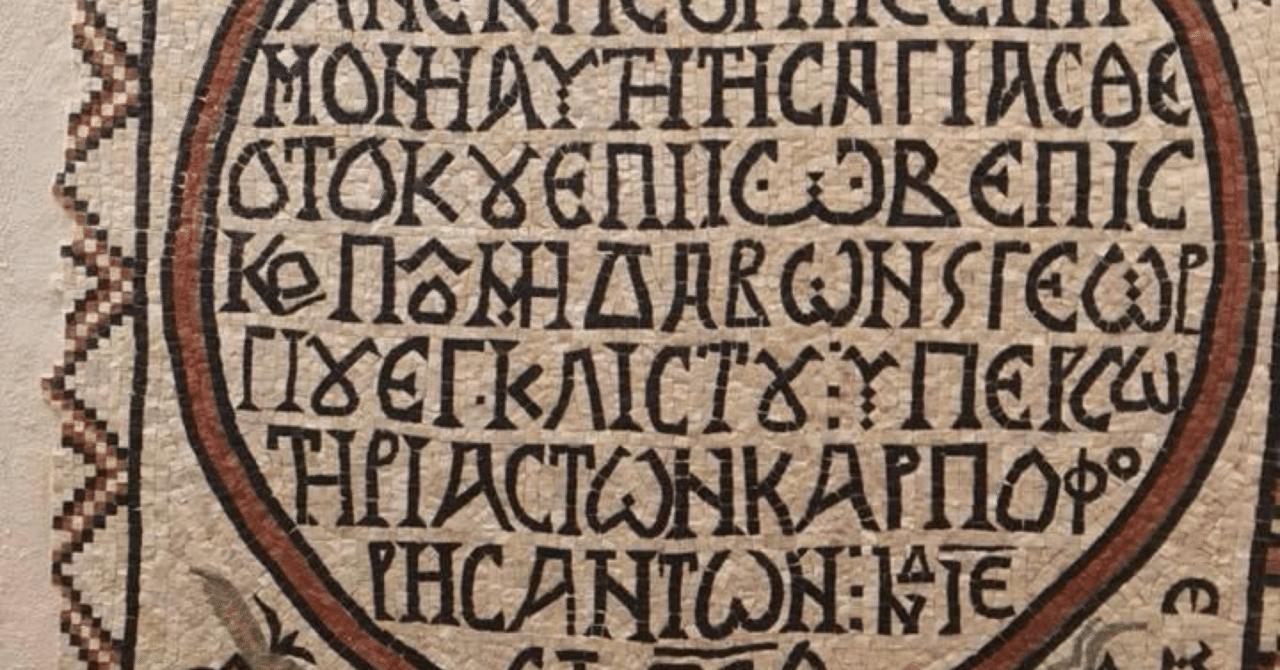 ΜΟΝΗΑΥΤΗΤΗϹΑΓΙΑϹΘΕ
ΟΤΟΚȢΕΠΙΙΩΒΕΠΙϹ
ΚΟΠΟΜΗΔΑΒΩΝSΓΕΩΡ
ΓΙȢΕΓ·ΚΛΙϹΤȢ:ΥΠΕΡϹΩ
ΤΗΡΙΑϹΤΩΝΚΑΡΠΟΦΟ
ΡΗϹΑΝΤΩΝ:ΙΝΔΙΕ